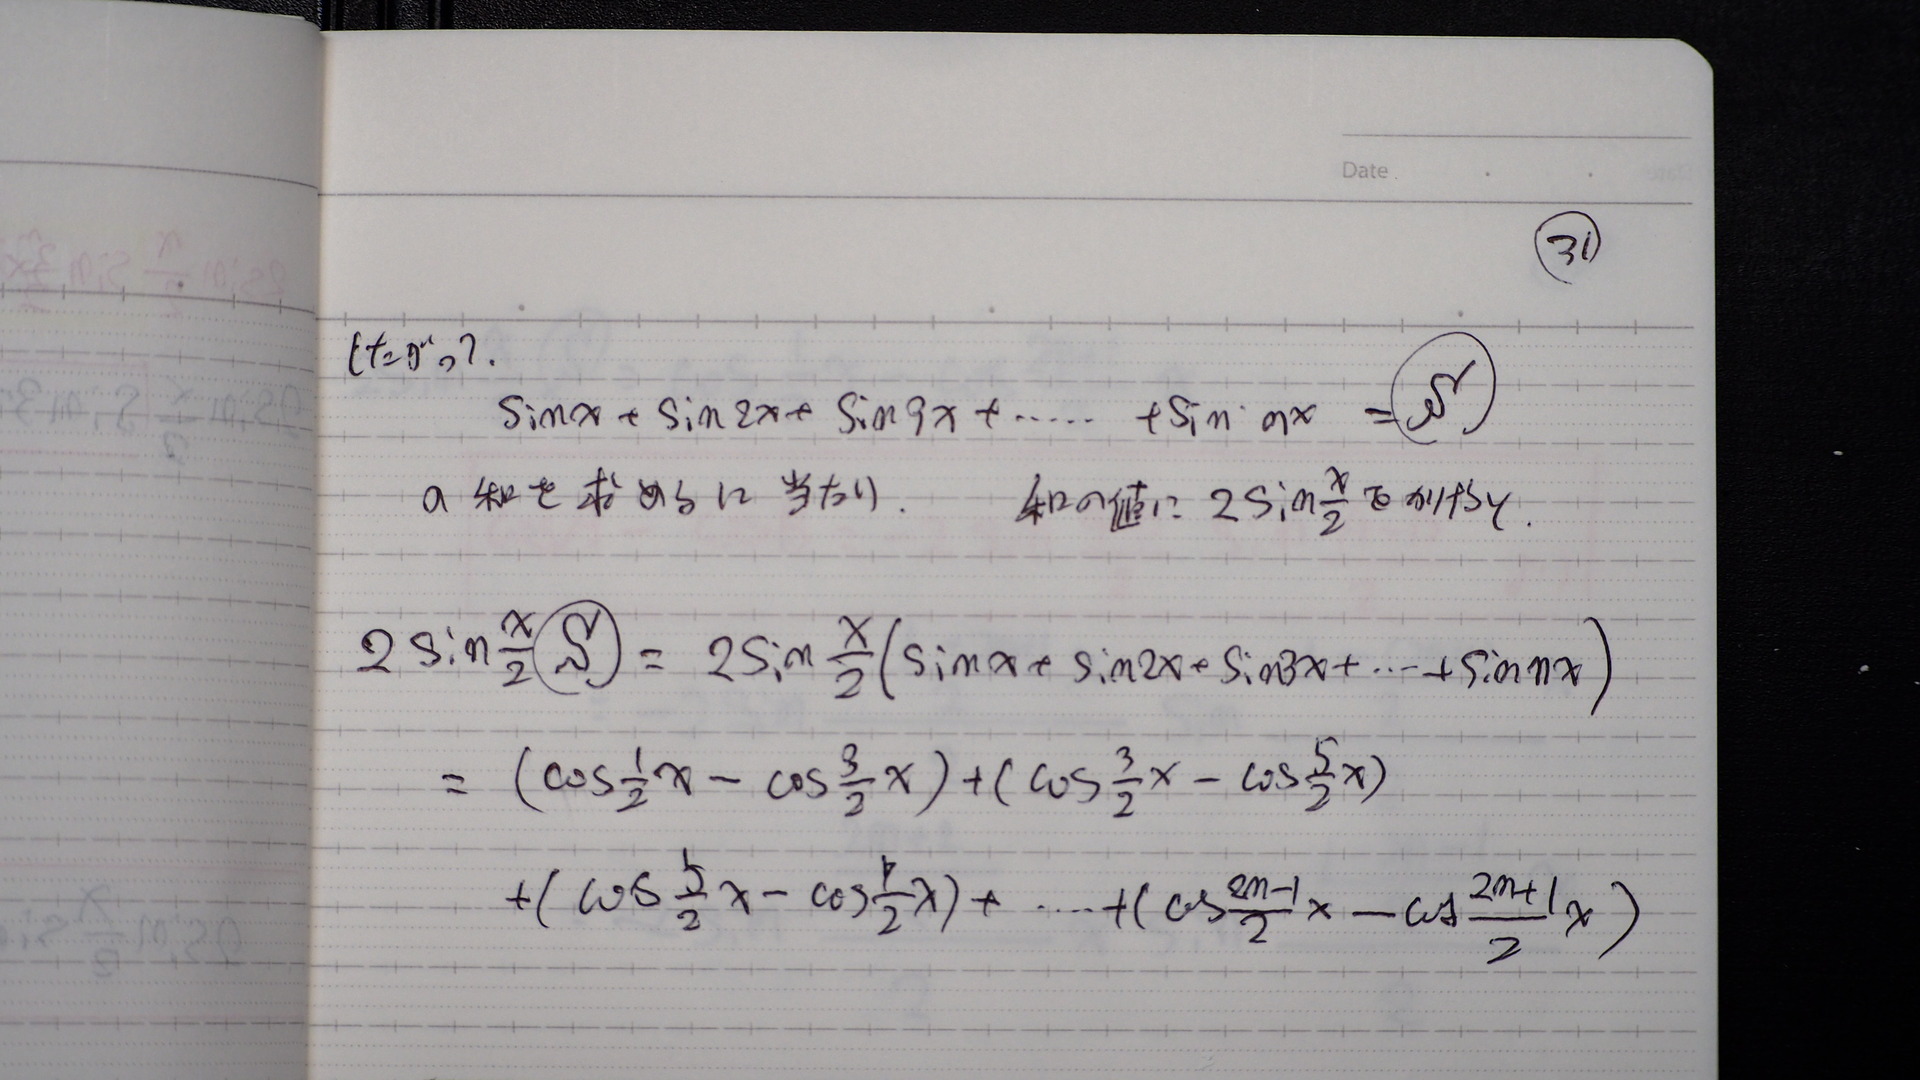 Date
㉛
したがって.
sin x + sin 2x + sin 3x + ...... + sin nx = S
の和を求めるに当たり. 和の値に 2 sin x/2 をかけると.
2 sin x/2 S = 2 sin x/2 (sin x + sin 2x + sin 3x + ... + sin nx)
= (cos 1/2 x − cos 3/2 x) + (cos 3/2 x − cos 5/2 x)
+ (cos 5/2 x − cos 7/2 x) + ..... + (cos 2n−1/2 x − cos 2n+1/2 x)